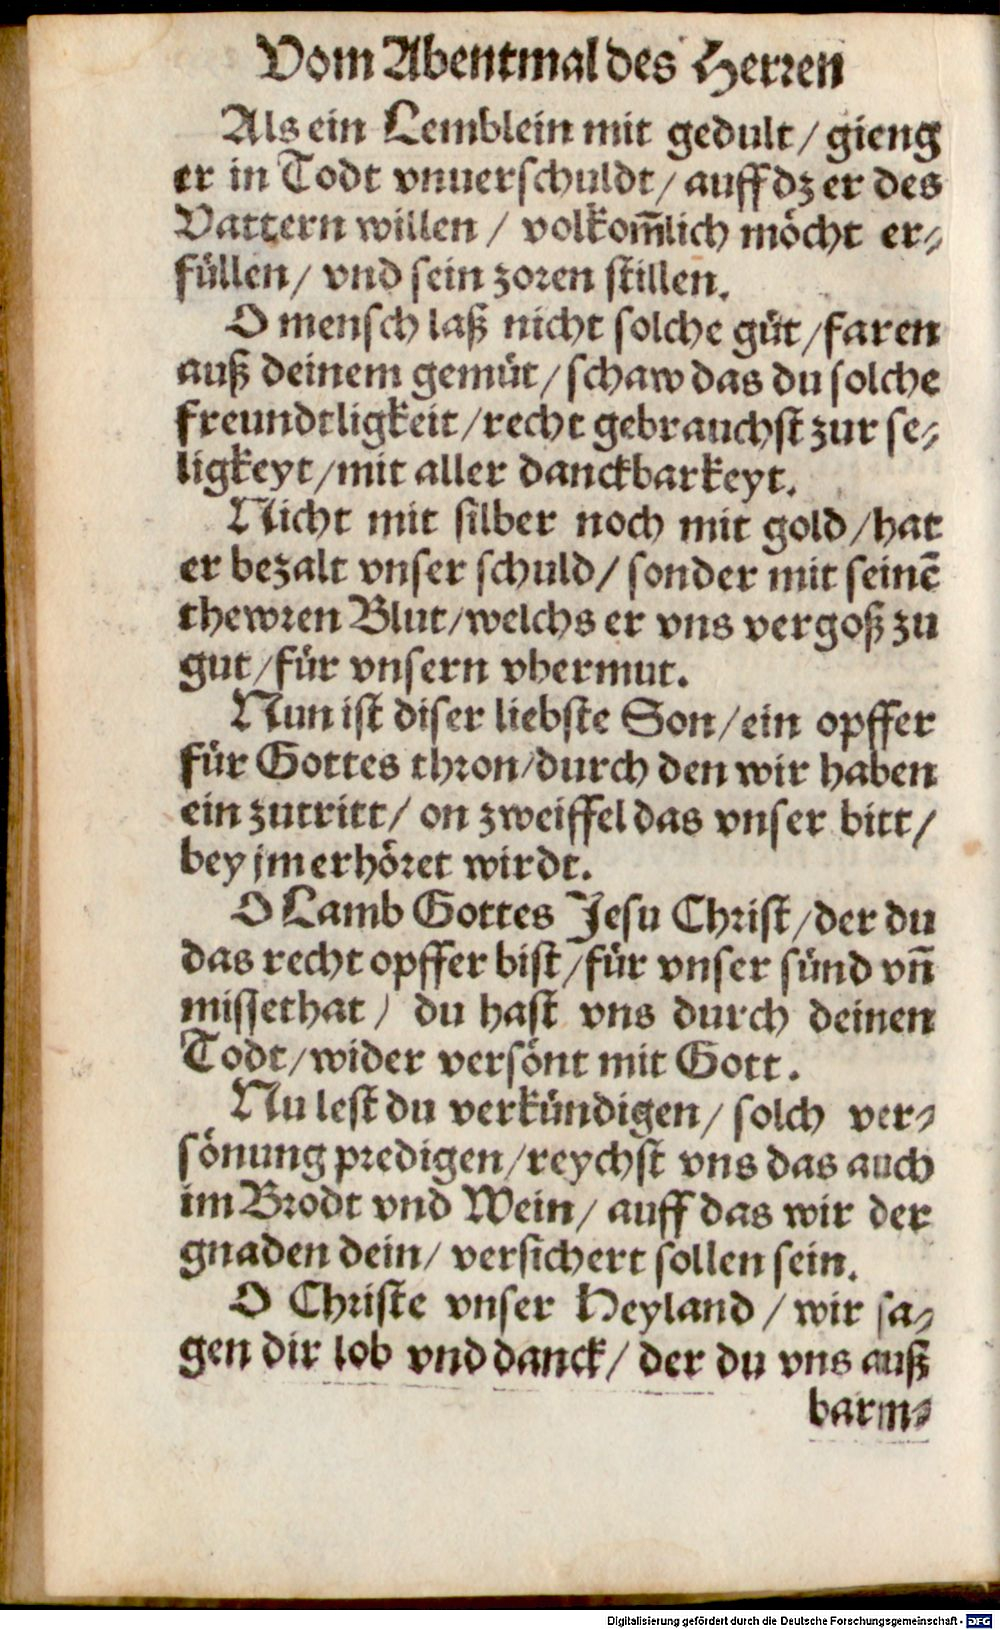 Vom Abentmal des Herren
Als ein Lemblein mit gedult / gieng
er in Todt vnuerschuldt / auff dz er des
Vattern willen / volkom̃lich möcht er-
füllen / vnd sein zoren stillen.
O mensch laß nicht solche güt / faren
auß deinem gemüt / schaw das du solche
freundtligkeit / recht gebrauchst zur se-
ligkeyt / mit aller danckbarkeyt.
Nicht mit silber noch mit gold / hat
er bezalt vnser schuld / sonder mit seinē
thewren Blut / welchs er vns vergoß zu
gut / für vnsern vbermut.
Nun ist diser liebste Son / ein opffer
für Gottes thron / durch den wir haben
ein zutritt / on zweiffel das vnser bitt /
bey jm erhöret wirdt.
O Lamb Gottes Jesu Christ / der du
das recht opffer bist / für vnser sünd vñ
missethat / du hast vns durch deinen
Todt / wider versönt mit Gott.
Nu lest du verkündigen / solch ver-
sönung predigen / reychst vns das auch
im Brodt vnd Wein / auff das wir der
gnaden dein / versichert sollen sein.
O Christe vnser Heyland / wir sa-
gen dir lob vnd danck / der du vns auß
barm-
Digitalisierung gefördert durch die Deutsche Forschungsgemeinschaft - DFG